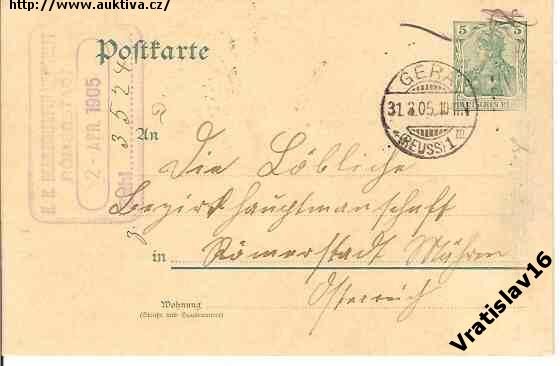 http://www.auktiva.cz/
Postkarte
5 5
GERA
31.3.05. 10-11 V
*(REUSS)1 m
DEUTSCHES REICH
2 - APR. 1905
3524
An
Die Löbliche
Bezirkshauptmanschaft
in Römerstadt Mähren
Österreich
Wohnung
(Straße und Hausnummer)
Vratislav16